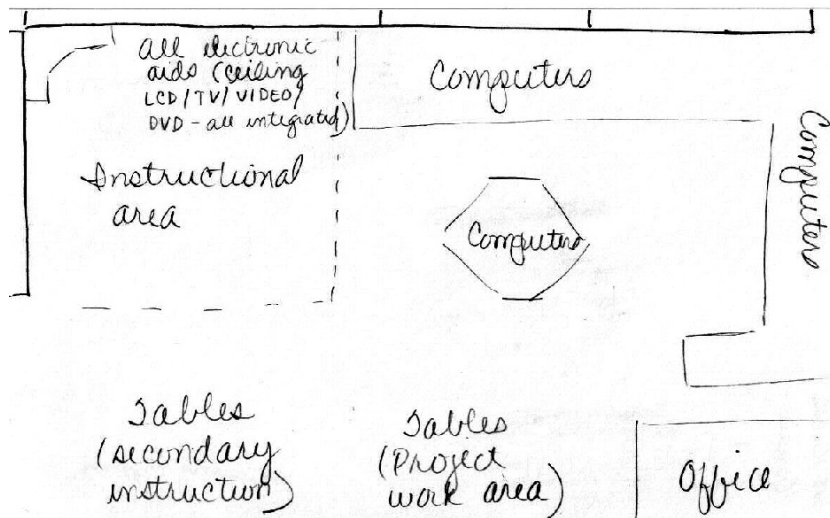 All electronic
aids (ceiling
LCD/TV/VIDEO/
DVD - all integrated)
Instructional
area
Computers
Computers
Computers
Tables
(secondary
instruction)
Tables
(Project
work area)
Office